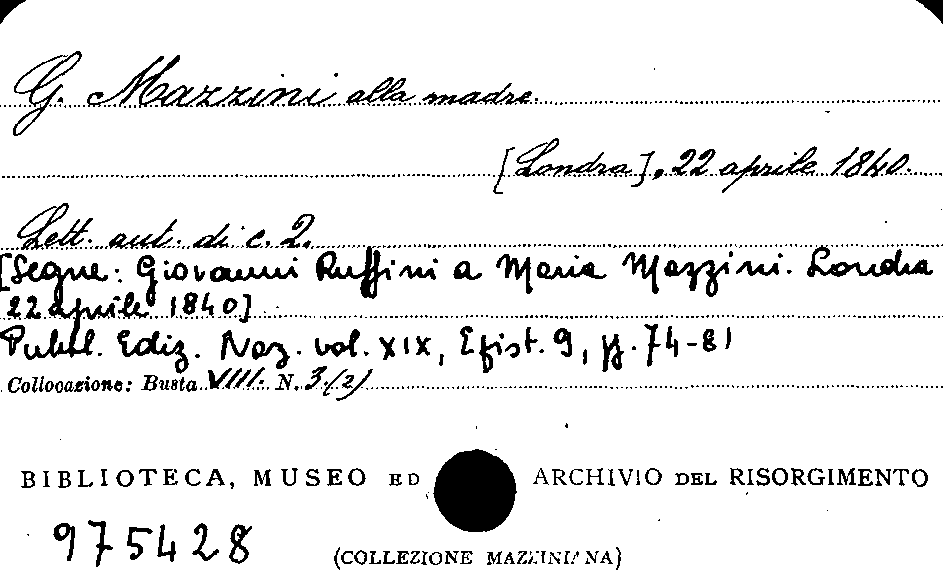 G. Mazzini alla madre.
[Londra], 22 aprile 1840.
Lett. aut. di c. 2.
[Segue: Giovanni Ruffini a Maria Mazzini. Londra
22 aprile 1840]
Pubbl. Ediz. Naz. vol. XIX, Epist. 9, pp. 74-81
Collocazione: Busta VIII. N. 3.(2)
BIBLIOTECA, MUSEO ED ARCHIVIO DEL RISORGIMENTO
975428
(COLLEZIONE MAZZINIANA)